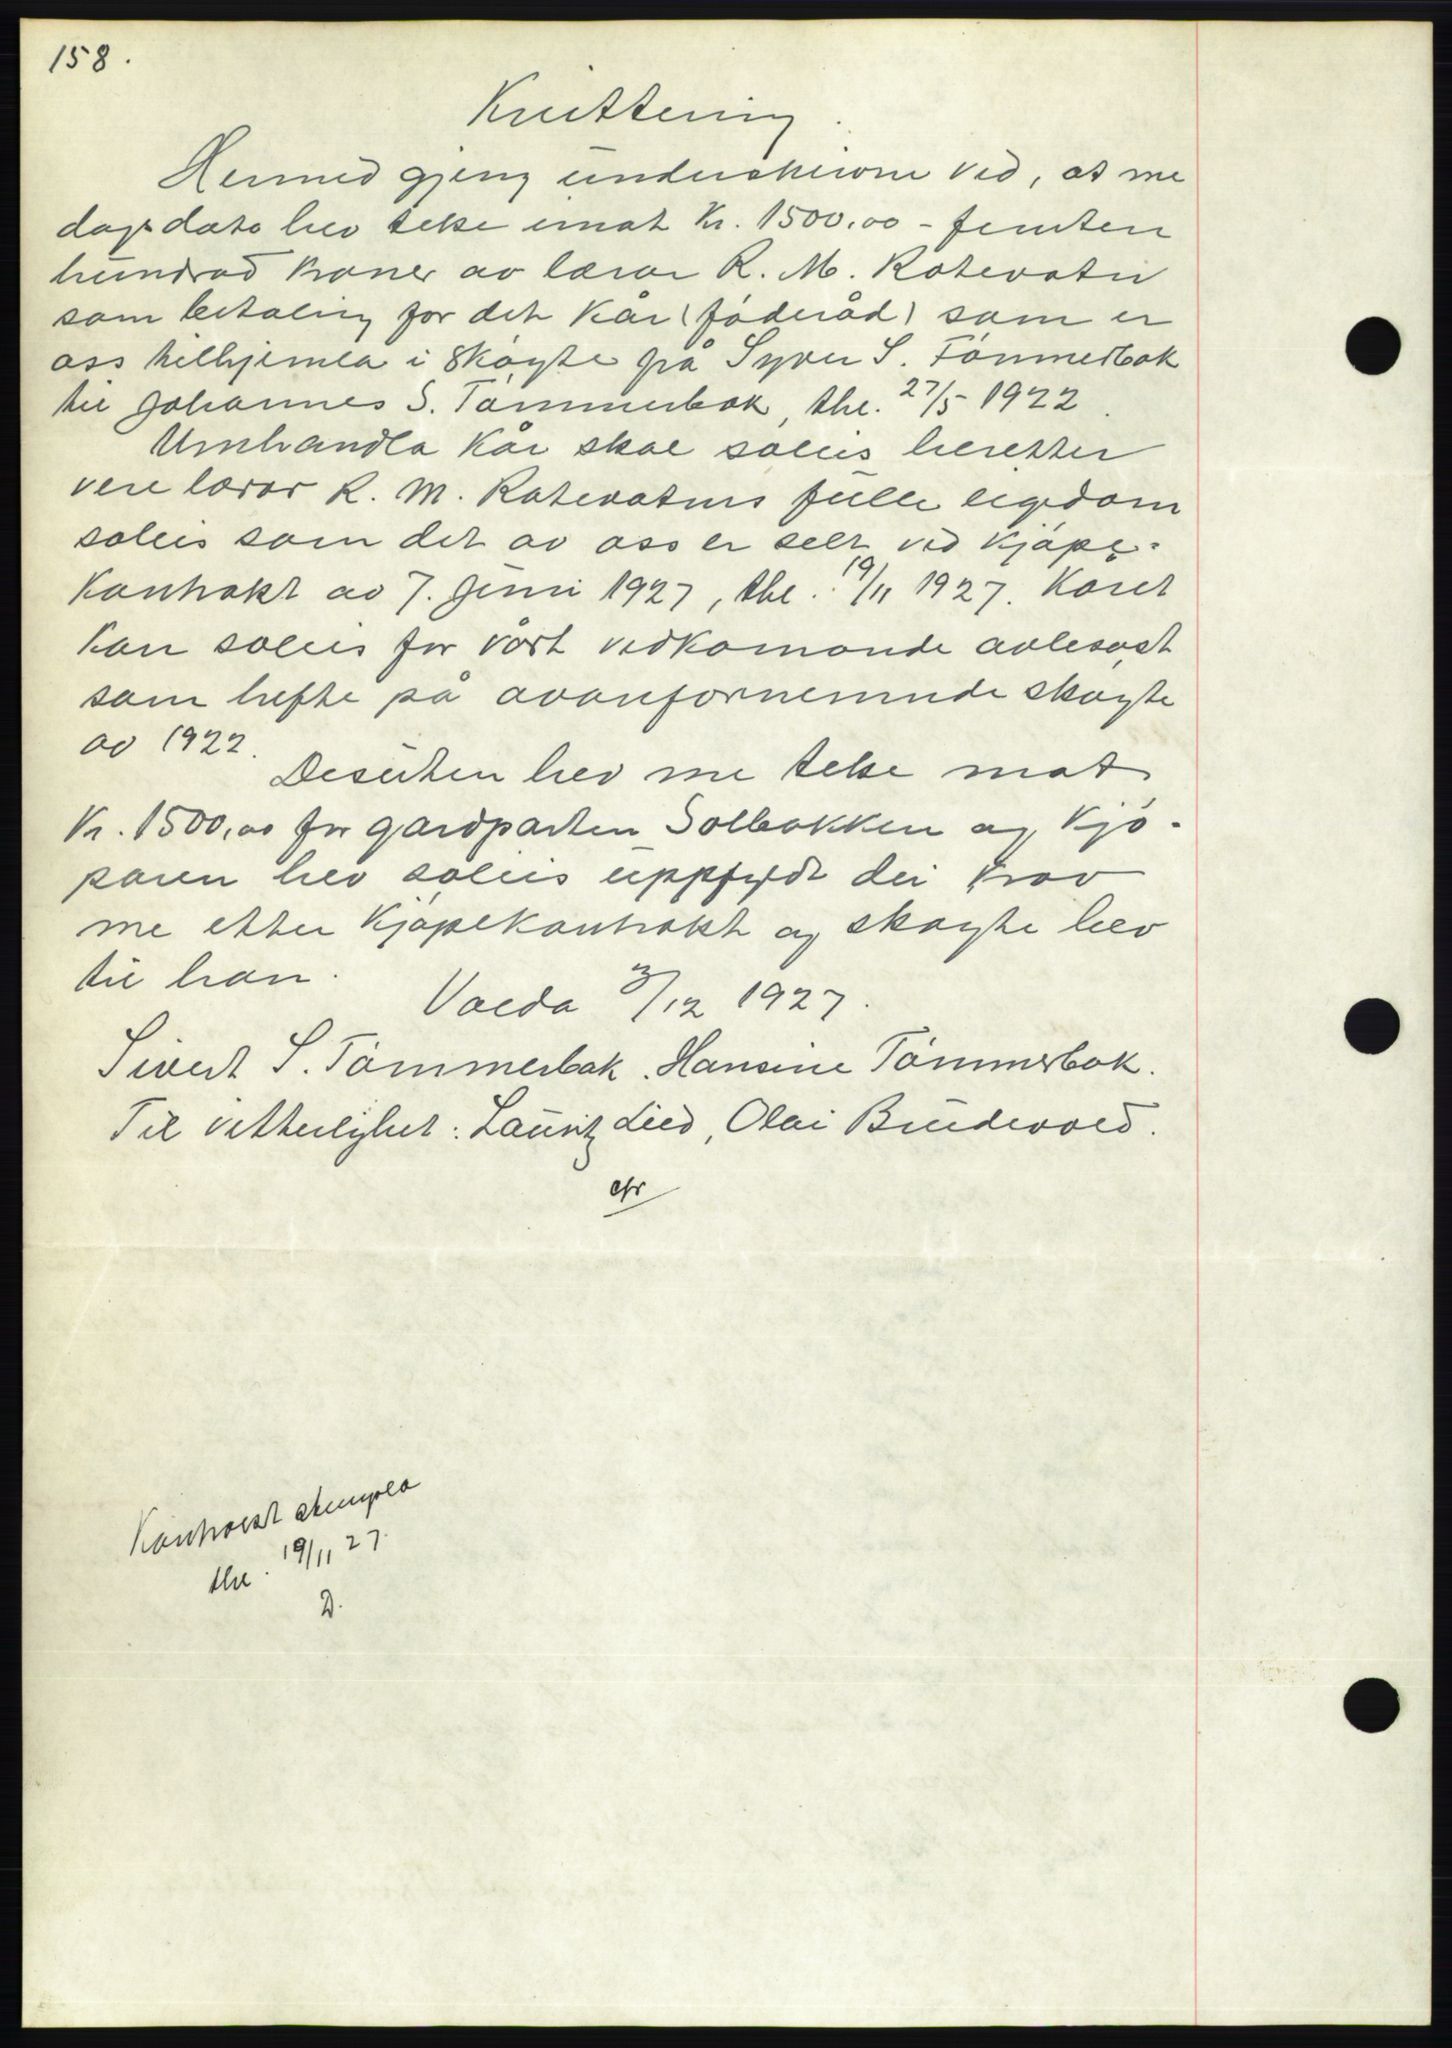 158.
Kvittering.
Hermed gjeng underskrivne ved, at me
dags dato hev teke imot Kr. 1500,00 - femten
hundrad Kroner av lærar R. M. Rotevatn
som betaling for det Kår (føderåd) som er
oss tilhjemla i skøyte frå Syver S. Tømmerbak
til Johannes S. Tømmerbak, thl. 27/5 1922.
Umhandla Kår skal soleis heretter
vere lærar R. M. Rotevatns fulle eigedom
soleis som det av oss er selt ved kjøpe-
Kontrakt av 7. Juni 1927, thl. 19/11 1927. Kåret
Kan soleis for vårt vedkomande avlesast
som hefte på ovanfornemnde skøyte
av 1922.
Desuten hev me teke mot
Kr. 1500,00 for gardparten Solbakken og Kjø-
paren hev soleis uppfyldt dei krav
me etter Kjøpekontrakt og skøyte hev
til han.
Volda 3/12 1927.
Sivert S. Tømmerbak. Hansine Tømmerbak.
Til vitterlighet: Lauritz Lied, Olai Brudevold.
cfr
Kontrakt stempla
thl. 19/11 27.
D.